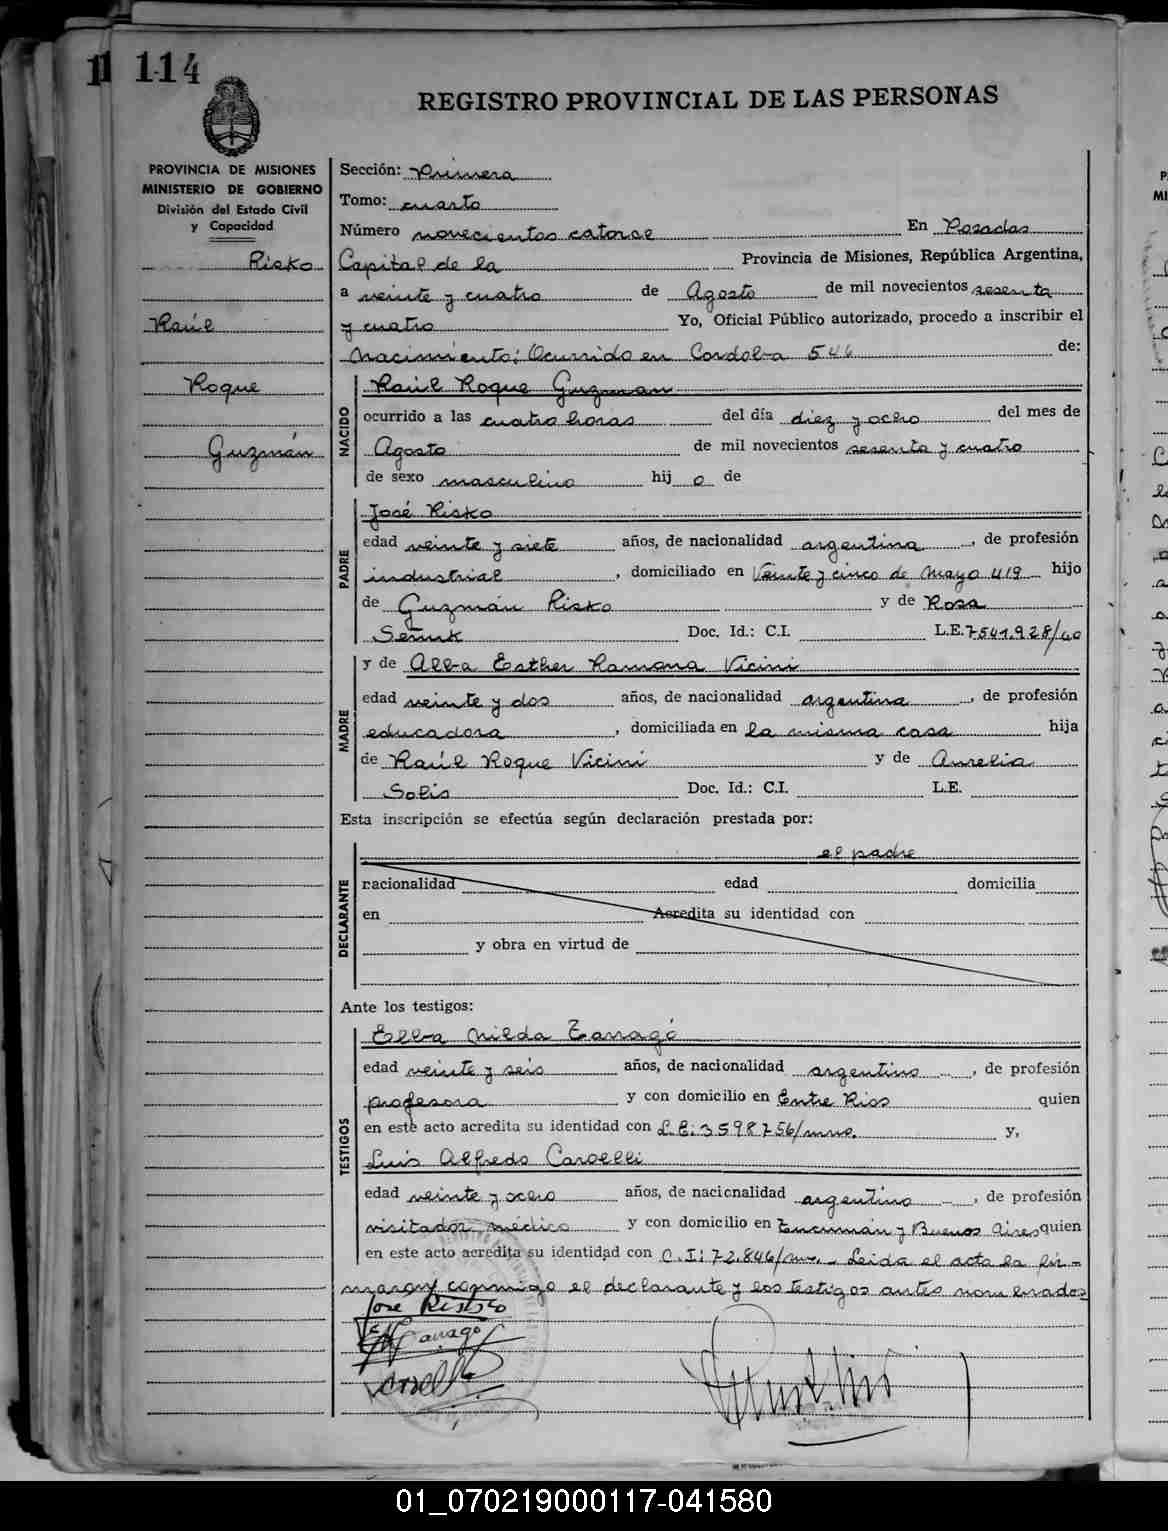 114
REGISTRO PROVINCIAL DE LAS PERSONAS
PROVINCIA DE MISIONES
MINISTERIO DE GOBIERNO
División del Estado Civil
y Capacidad
Risko
Raúl
Roque
Guzmán
Sección: Primera
Tomo: cuarto
Número novecientos catorce En Posadas
Capital de la Provincia de Misiones, República Argentina,
a veinte y cuatro de Agosto de mil novecientos sesenta
y cuatro Yo, Oficial Público autorizado, procedo a inscribir el
Nacimiento: Ocurrido en Cordoba 546 de:
NACIDO
Raúl Roque Guzman
ocurrido a las cuatro horas del día diez y ocho del mes de
Agosto de mil novecientos sesenta y cuatro
de sexo masculino hij o de
PADRE
José Risko
edad veinte y siete años, de nacionalidad argentina, de profesión
industrial, domiciliado en Veinte y cinco de Mayo 419 hijo
de Guzmán Risko y de Rosa
Semik Doc. Id.: C.I. L.E. 7541.928/40
MADRE
y de Alba Esther Ramona Vicini
edad veinte y dos años, de nacionalidad argentina, de profesión
educadora, domiciliada en la misma casa hija
de Raúl Roque Vicini y de Aurelia
Solis Doc. Id.: C.I. L.E.
Esta inscripción se efectúa según declaración prestada por:
DECLARANTE
el padre
nacionalidad edad domicilia
en Acredita su identidad con
y obra en virtud de
Ante los testigos:
TESTIGOS
Elba Nilda Tarragó
edad veinte y seis años, de nacionalidad argentino, de profesión
profesora y con domicilio en Entre Rios quien
en este acto acredita su identidad con L.E: 3598756/mne. y,
Luis Alfredo Caroelli
edad veinte y ocho años, de nacionalidad argentino, de profesión
visitador médico y con domicilio en Tucumán y Buenos Aires quien
en este acto acredita su identidad con C.I: 72.846/mne. - Leida el acta la fir-
maron conmigo el declarante y los testigos antes nombrados
José Risko
01_070219000117-041580